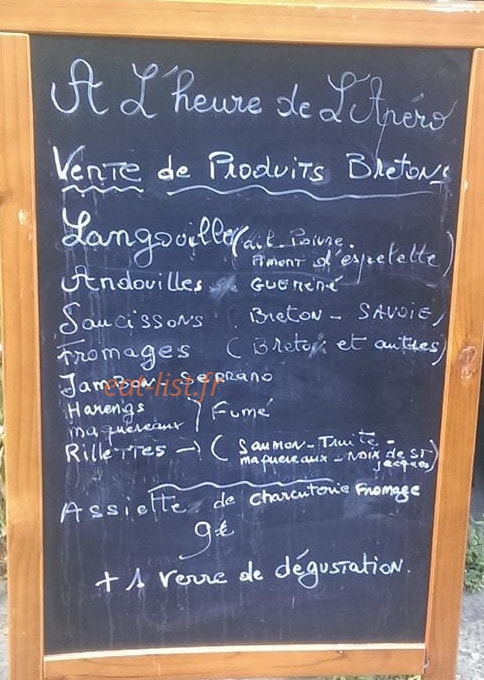 A L'heure de L'Apéro
Vente de Produits Bretons
Langouille (ail - Poivre -
Piment d'espelette)
Andouilles Guéméné
Saucissons (Breton - SAVOIE)
Fromages (Breton et autres)
Jambon Serrano
eat-list.fr
Harengs
maquereaux } Fumé
Rillettes → (Saumon - Truite -
maquereaux - Noix de St
Jacques)
Assiette de charcuterie Fromage
9€
+ 1 verre de dégustation.